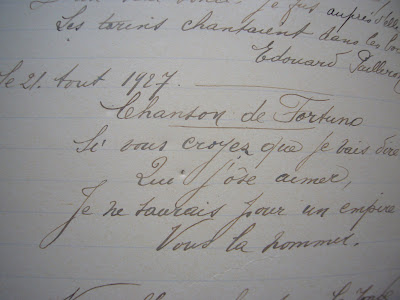 je fus auprès d'elle
Les tarins chantaient dans les
Edouard Pailleron
Le 21. Aout 1927.
Chanson de Fortuno
Si vous croyez que je vais dire
Qui j'ose aimer,
Je ne saurais pour un empire
Vous la nommer.